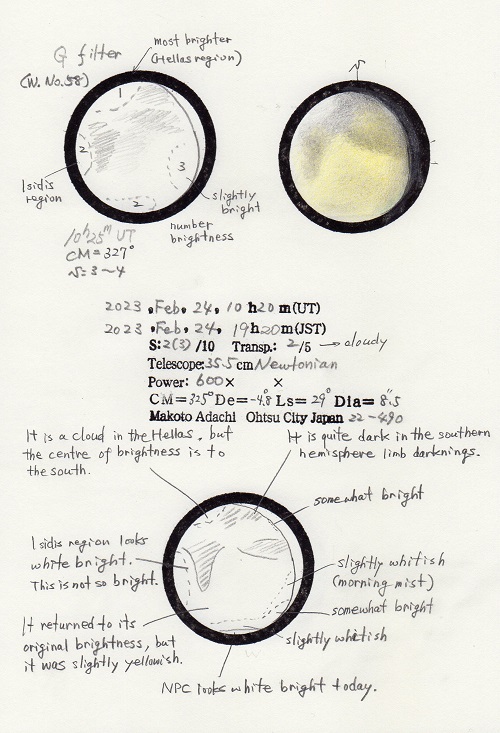 G filter
(W. No. 58)
most brighter
(Hellas region)
1
2
3
2
Isidis
region
slightly
bright
number
brightness
10h25m UT
CM=327°
√=3~4
2023, Feb, 24, 10 h20 m(UT)
2023, Feb, 24, 19h20m(JST)
S: 2(3) /10 Transp.: 2/5 → cloudy
Telescope: 35.5 cm Newtonian
Power: 600× ×
CM=325° De=-4.8 Ls=29° Dia=8".5
Makoto Adachi Ohtsu City Japan 22-490
It is a cloud in the Hellas, but
the centre of brightness is to
the south.
It is quite dark in the southern
hemisphere limb darknings.
somewhat bright
Isidis region looks
white bright.
This is not so bright.
slightly whitish
(morning mist)
somewhat bright
It returned to its
original brightness, but
it was slightly yellowish.
slightly whitish
NPC looks white bright today.